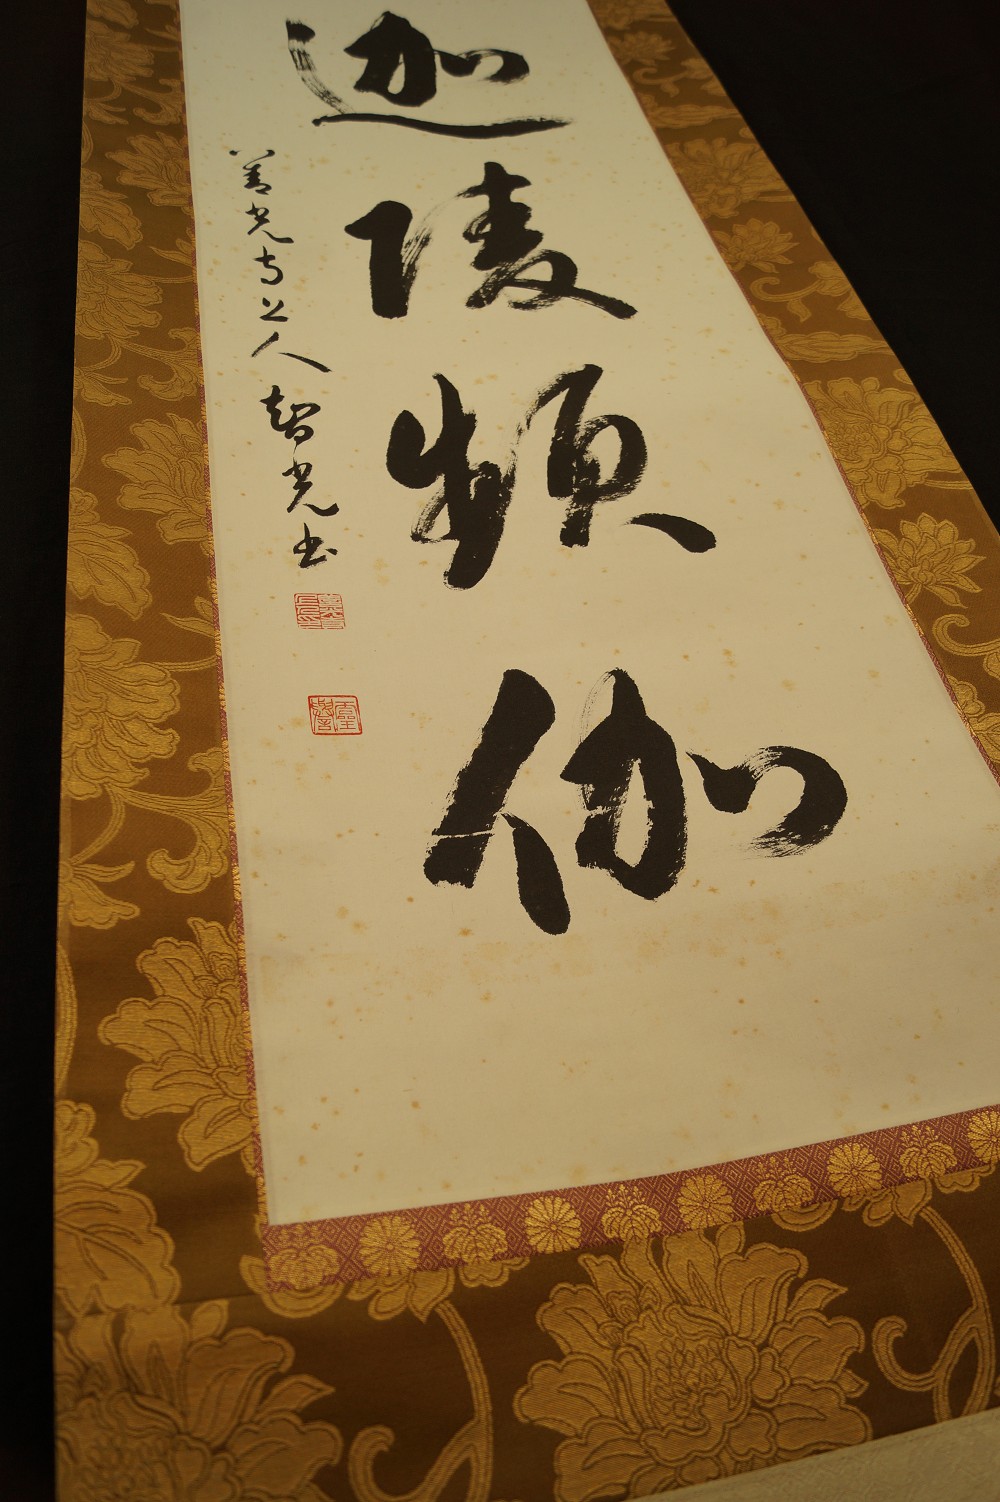 迦陵頻伽
善光寺上人智光書